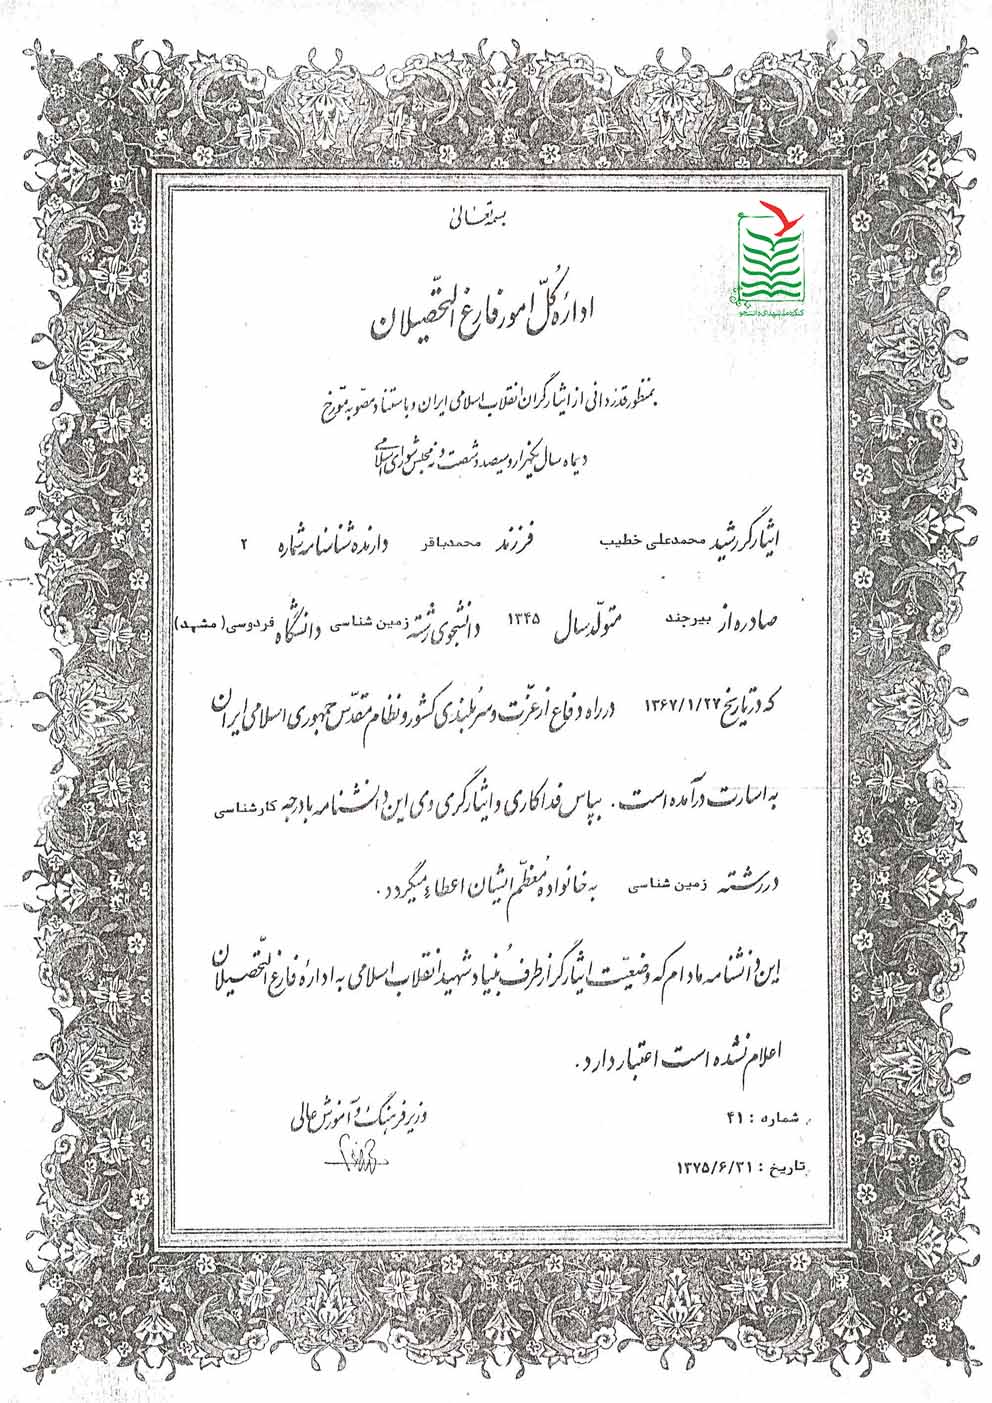 بسمه تعالی
کنگره ملی شهدای دانشجو
ادارهٔ کُلّ امور فارغ التّحصیلان
بمنظور قدردانی از ایثارگران انقلاب اسلامی ایران و با استناد مصوبه مورّخ
دیماه سال یکهزار و سیصد و شصت و نه مجلس شورای اسلامی
ایثارگر رشید محمدعلی خطیب فرزند محمدباقر دارنده شناسنامه شماره ۲
صادره از بیرجند متولّد سال ۱۳۴۵ دانشجوی رشته زمین شناسی دانشگاه فردوسی(مشهد)
که در تاریخ ۱۳۶۷/۱/۲۷ در راه دفاع از عزّت و سربُلندی کشور و نظام مقدّس جمهوری اسلامی ایران
به اسارت درآمده است. بپاس فداکاری و ایثارگری وی این دانشنامه با درجه کارشناسی
در رشته زمین شناسی به خانواده مُعظّم ایشان اعطاء میگردد.
این دانشنامه مادام که وضعیّت ایثارگر از طرف بُنیاد شهید انقلاب اسلامی به ادارهٔ فارغ التّحصیلان
اعلام نشده است اعتبار دارد.
وزیر فرهنگ و آموزش عالی
شماره : ۴۱
تاریخ : ۱۳۷۵/۶/۳۱